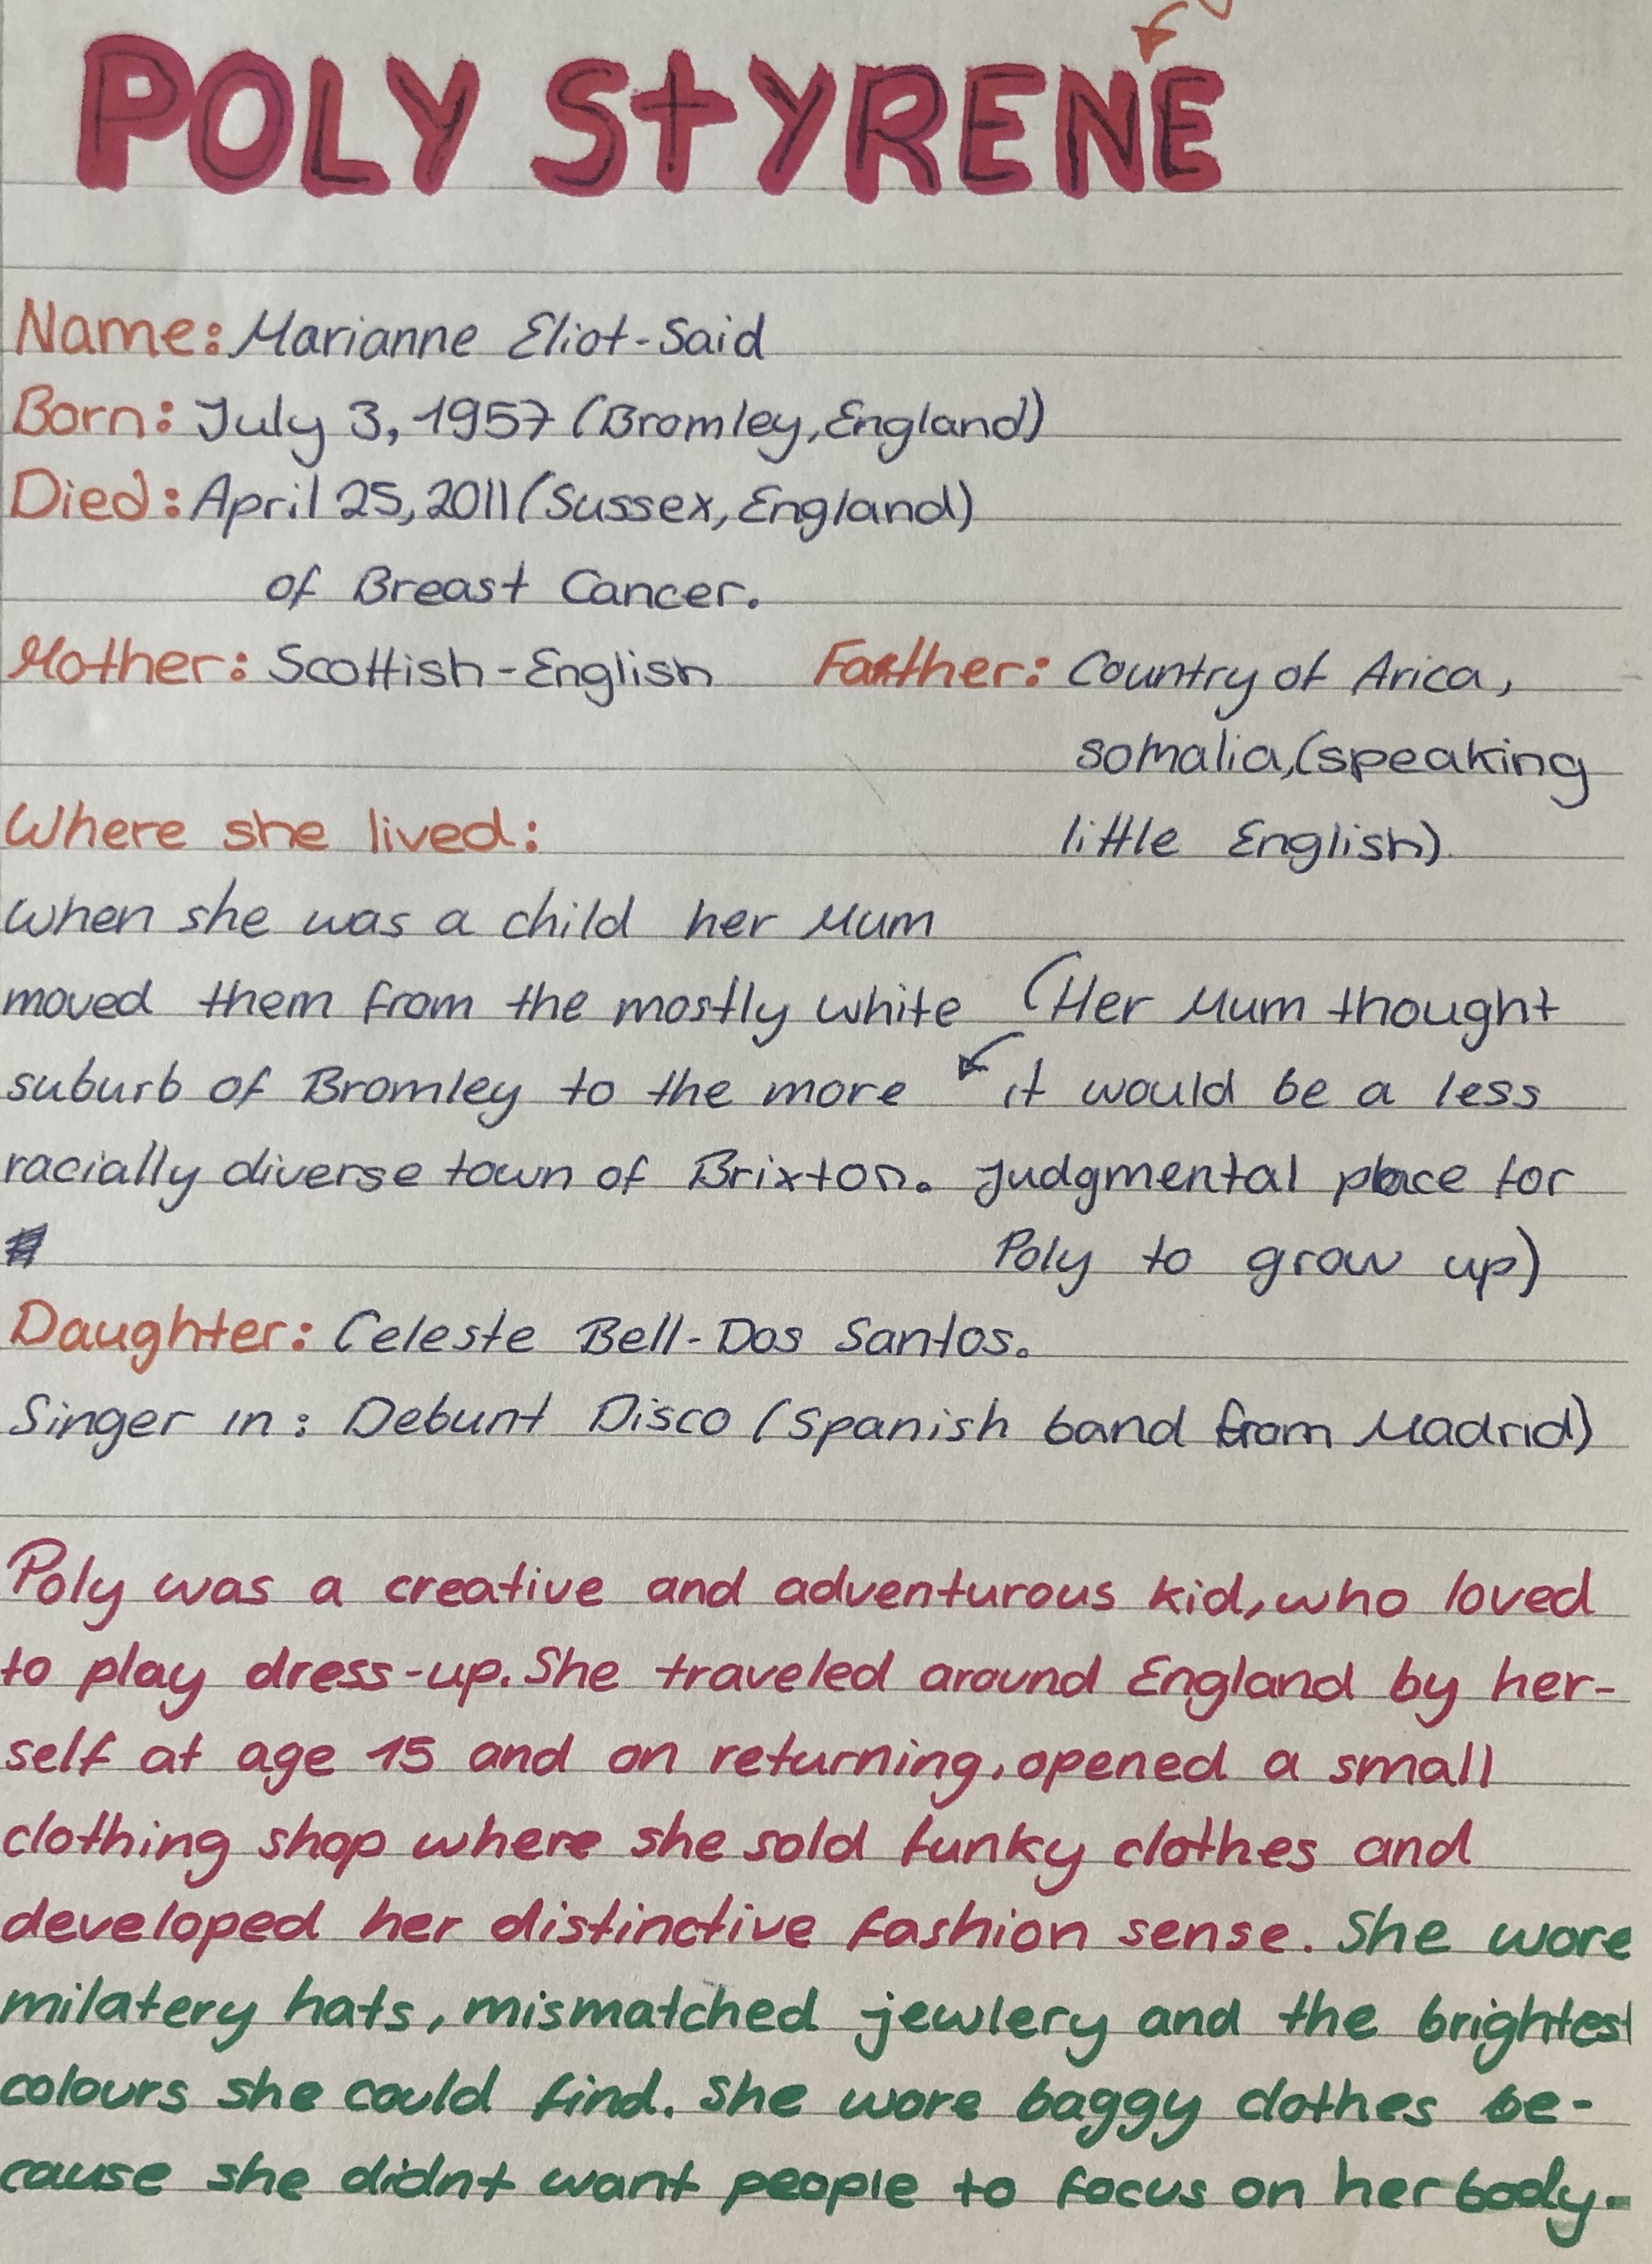 POLY StYRENE
Name: Marianne Eliot-Said
Born: July 3, 1957 (Bromley, England)
Died: April 25, 2011 (Sussex, England)
of Breast Cancer.
Mother: Scottish-English Father: Country of Arica,
somalia, (speaking
little English)
Where she lived:
When she was a child her Mum
moved them from the mostly white
suburb of Bromley to the more
racially diverse town of Brixton.
(Her Mum thought
it would be a less
judgmental place for
Poly to grow up)
Daughter: Celeste Bell-Dos Santos.
Singer in: Debunt Disco (Spanish band from Madrid)
Poly was a creative and adventurous kid, who loved
to play dress-up. She traveled around England by her-
self at age 15 and on returning, opened a small
clothing shop where she sold funky clothes and
developed her distinctive fashion sense. She wore
milatery hats, mismatched jewlery and the brightest
colours she could find. She wore baggy clothes be-
cause she didnt want people to focus on her body.